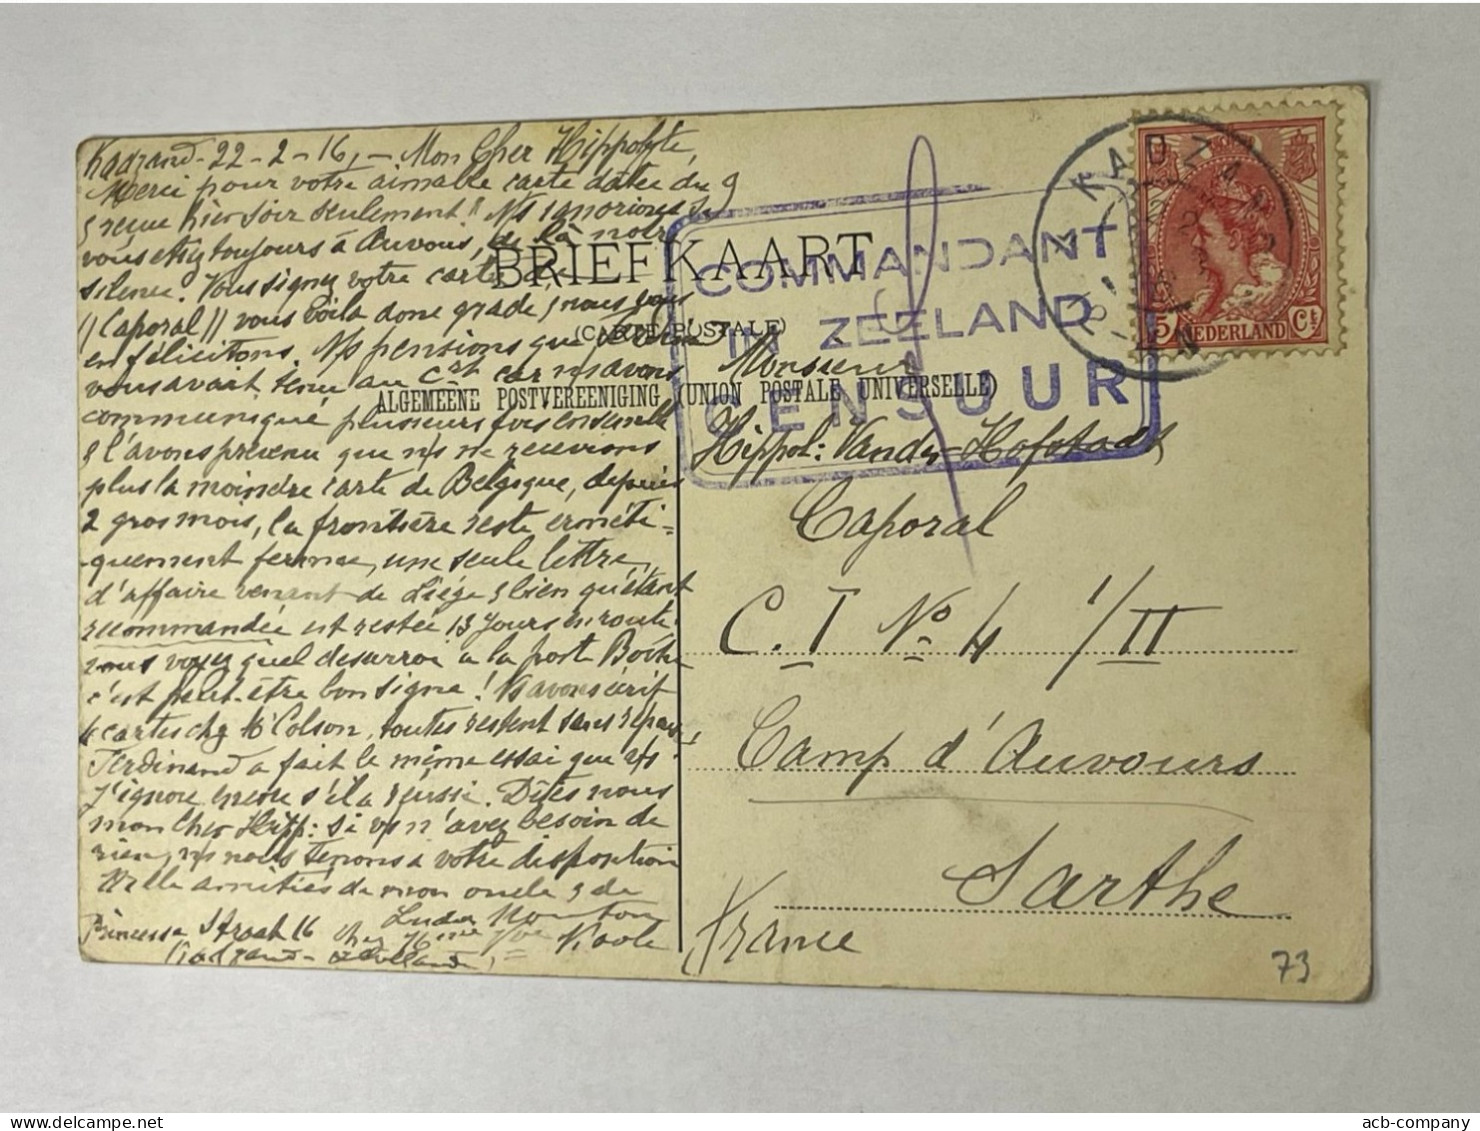 Kadzand - 22-2-16, - Mon Cher Hippolyte,
Merci pour votre aimable carte datée du 9
reçue hier soir seulement! Ns ignorions si
vous étiez toujours à Auvours, de là notre
silence. Vous signez votre carte de
//Caporal// vous voilà donc gradé, nous vous
en félicitons. Ns pensions que
vous avait tenu au ct car ns avons
communiqué plusieurs fois ensemble
& l'avons prévenu que ns ne recevions
plus la moindre carte de Belgique, depuis
2 gros mois, la frontière reste erméti-
quement fermée, une seule lettre,
d'affaire venant de Liége & bien qu'étant
recommandée est restée 13 jours en route.
vous voyez quel désarroi a la poste Boche
c'est peut-être bon signe! Ns avons écrit
4 cartes chez Mr Colson, toutes restent sans répse!
Ferdinand a fait le même essai que ns
j'ignore encore s'il a réussi. Dites nous
mon cher Hipp: si vs n'avez besoin de
rien, ns nous tenons à votre disposition
Mille amitiés de mon oncle & de
Mouton
Princesse Straat 16 chez Me Vve
Kadzand - Zélande
BRIEFKAART
(CARTE POSTALE)
ALGEMEENE POSTVEREENIGING (UNION POSTALE UNIVERSELLE)
COMMANDANT
IN ZEELAND
CENSUUR
KADZAND
5 NEDERLAND Ct
Monsieur
Hippol: Vander Hofstadt
Caporal
C. I No 4 1/II
Camp d'Auvours
Sarthe
France
73
acb-company